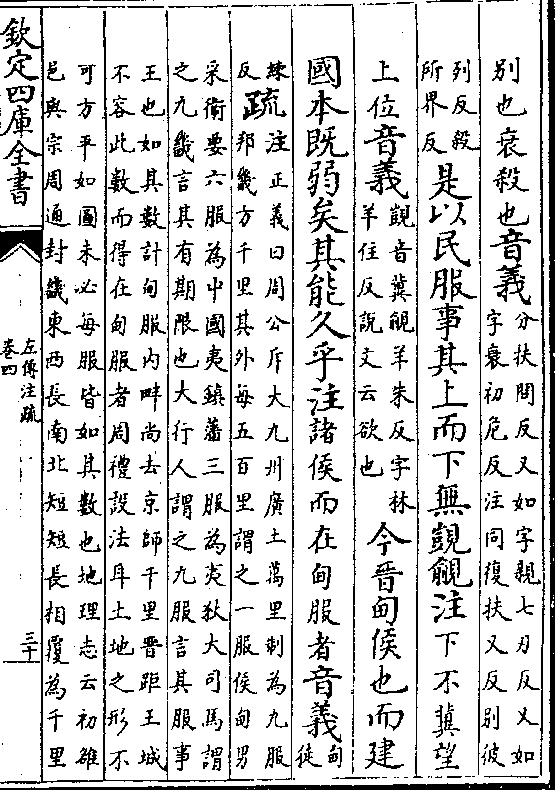 別也衰殺也音義分扶問反又如字親七刀反又如
字衰初危反注同復扶又反別彼
列反殺
所界反是以民服事其上而下無覬覦注下不冀望
上位音義覬音冀覦羊朱反字林
羊住反說文云欲也今晉甸侯也而建
國本既弱矣其能久乎注諸侯而在甸服者音義甸
徒
練
反疏注正義曰周公斥大九州廣土萬里制為九服
邦畿方千里其外每五百里謂之一服侯甸男
采衛要六服為中國夷鎮蕃三服為夷狄大司馬謂
之九畿言其有期限也大行人謂之九服言其服事
王也如其數計甸服內畔尚去京師千里晉距王城
不容此數而得在甸服者周禮設法耳土地之形不
可方平如圖未必每服皆如其數也地理志云初雒
邑與宗周通封畿東西長南北短短長相覆為千里
欽定四庫全書
左傳注疏
卷四
三十